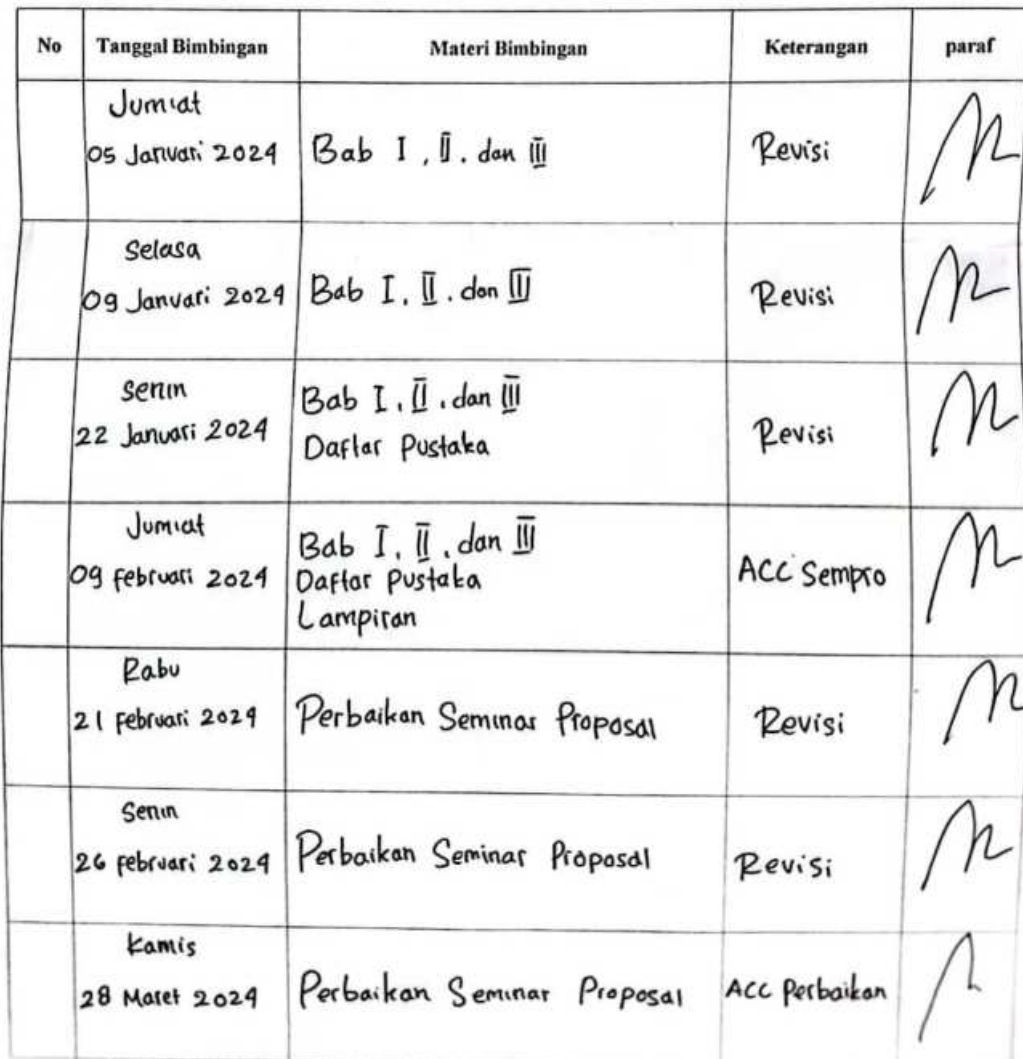 No Tanggal Bimbingan Materi Bimbingan Keterangan paraf
Jumiat
05 Januari 2024 Bab I, II. dan III Revisi
Selasa
09 Januari 2024 Bab I, II. dan III Revisi
Senin
22 Januari 2024 Bab I, II, dan III Revisi
Daftar Pustaka
Jumiat
09 februari 2024 Bab I, II, dan III ACC Sempro
Daftar Pustaka
Lampiran
Rabu
21 februari 2024 Perbaikan Seminar Proposal Revisi
Senin
26 februari 2024 Perbaikan Seminar Proposal Revisi
Kamis
28 Maret 2024 Perbaikan Seminar Proposal ACC Perbaikan